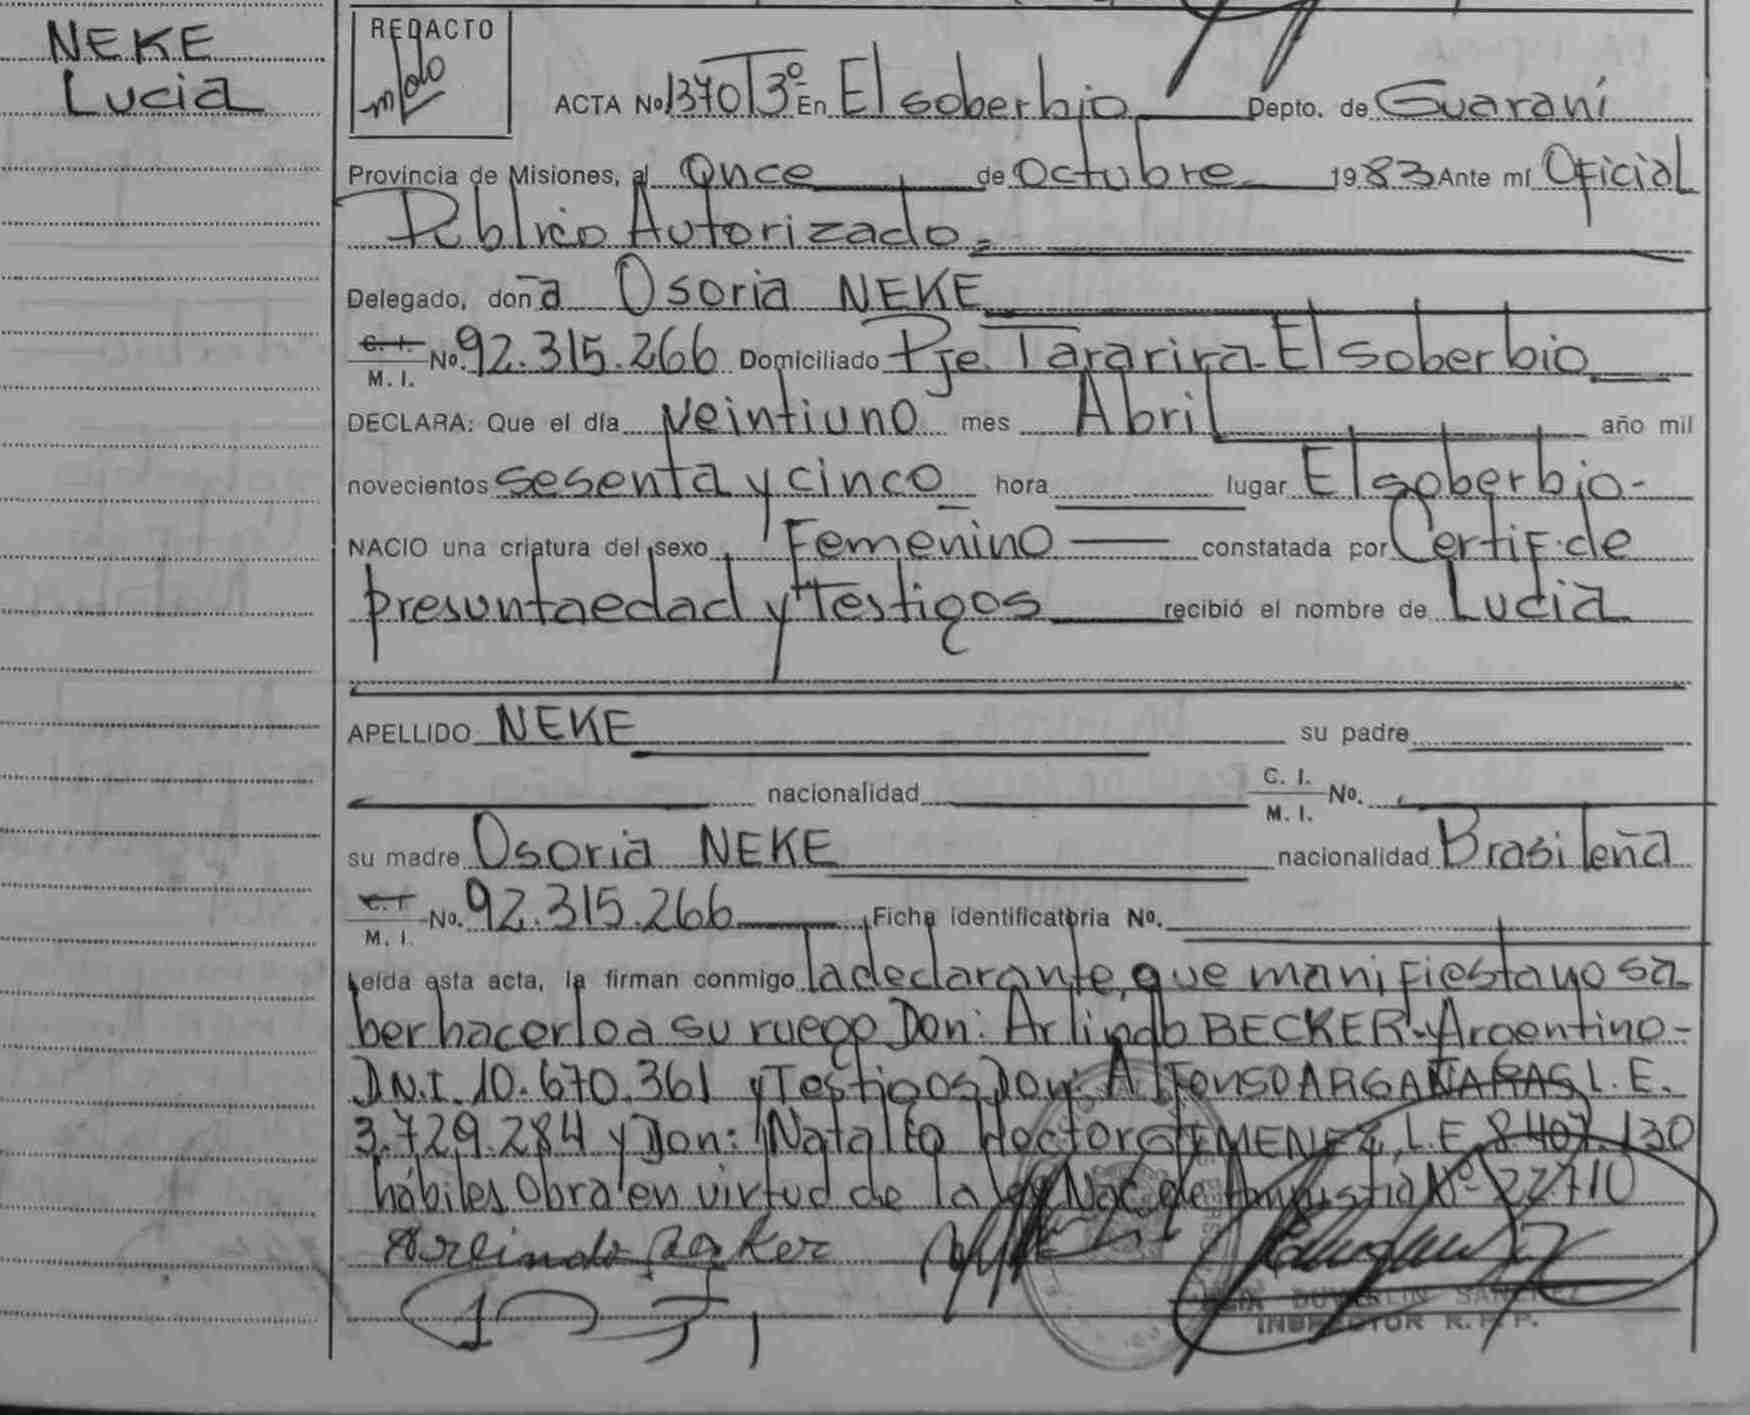 NEKE
Lucia
REDACTO
ACTA Nº 1370 T3º En El soberbio Depto. de Guaraní
Provincia de Misiones, al Once de Octubre 1983 Ante mí Oficial
Público Autorizado.=
Delegado, don a Osoria NEKE
C. I. M. I. Nº. 92.315.266 Domiciliado Pje. Tararira-El soberbio
DECLARA: Que el día veintiuno mes Abril año mil
novecientos sesenta y cinco hora lugar El soberbio-
NACIO una criatura del sexo Femenino constatada por Certif. de
presunta edad y Testigos recibió el nombre de Lucia
APELLIDO NEKE su padre
nacionalidad C. I. M. I. Nº.
su madre Osoria NEKE nacionalidad Brasileña
C. I. M. I. Nº. 92.315.266 Ficha identificatoria Nº.
Leída esta acta, la firman conmigo la declarante, que manifiesta no sa-
ber hacerlo a su ruego Don: Arlindo BECKER-Argentino-
D.N.I. 10.670.361 y Testigos Don: Alfonso ARGAÑARAS L.E.
3.729.284 y Don: Natalio Hector GIMENEZ, L.E. 8.407.130
hábiles Obra en virtud de la ley Nac de Amnistia Nº 22710
Arlindo Becker
DUVERLIN SANCHEZ
INSPECTOR R. P. P.